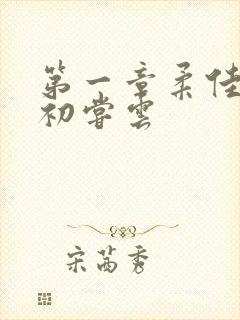 第一章柔佳
初尝云
宋茜秀